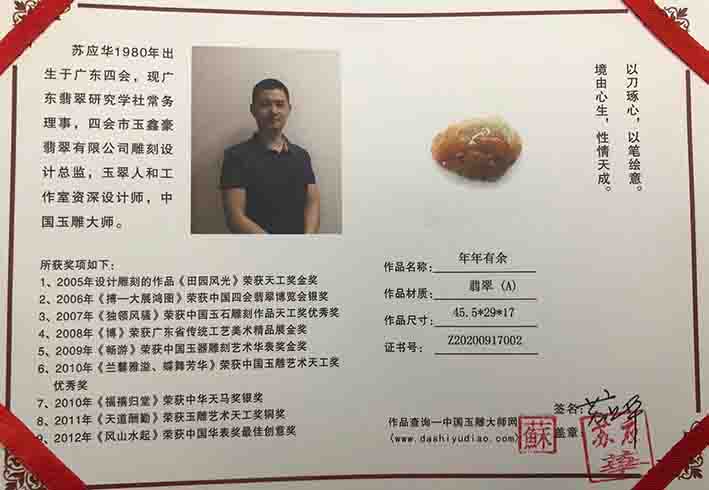 苏应华1980年出
生于广东四会，现广
东翡翠研究学社常务
理事，四会市玉鑫豪
翡翠有限公司雕刻设
计总监，玉翠人和工
作室资深设计师，中
国玉雕大师。
以刀琢心，以笔绘意。
境由心生，性情天成。
所获奖项如下：
1、2005年设计雕刻的作品《田园风光》荣获天工奖金奖
2、2006年《搏一大展鸿图》荣获中国四会翡翠博览会银奖
3、2007年《独领风骚》荣获中国玉石雕刻作品天工奖优秀奖
4、2008年《博》荣获广东省传统工艺美术精品展金奖
5、2009年《畅游》荣获中国玉器雕刻艺术华表奖金奖
6、2010年《兰馨雅溢、蝶舞芳华》荣获中国玉雕艺术天工奖
优秀奖
7、2010年《福禧归堂》荣获中华天马奖银奖
8、2011年《天道酬勤》荣获玉雕艺术天工奖铜奖
9、2012年《风山水起》荣获中国华表奖最佳创意奖
作品名称： 年年有余
作品材质： 翡翠 (A)
作品尺寸： 45.5*29*17
证书号： Z20200917002
作品查询一中国玉雕大师网
(www.dashiyudiao.com)
蘇
签名：
盖章：
苏应华